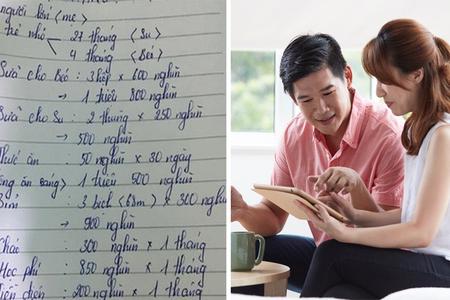 người lớn (mẹ)
trẻ nhỏ 27 tháng (Su)
4 tháng (Béi)
Sữa cho Béi : 3 hộp × 600 nghìn
→ 1 triệu 800 nghìn
Sữa cho Su : 2 thùng × 250 nghìn
→ 500 nghìn
Thức ăn : 50 nghìn × 30 ngày
ăn sáng) 1 triệu 500 nghìn
Bỉm : 3 bịch × 300 nghìn
→ 900 nghìn
Cháo : 300 nghìn × 1 tháng
Học phí : 850 nghìn × 1 tháng
Tiền điện : 200 nghìn × 1 tháng